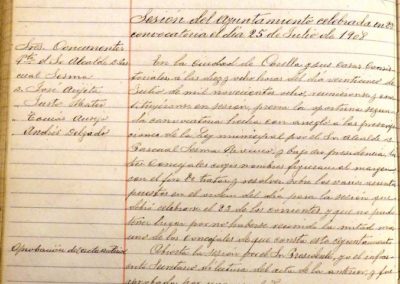 Sesion del Ayuntamiento celebrada en 2ª
convocatoria el dia 25 de Julio de 1908
Sres. Concurrentes
Pte. el Sr Alcalde D. Pas
cual Sesma
D. José
" Justo Mateo
" Tomás
" Andrés Delgado
En la Ciudad de Corella y sus Casas Consis
toriales a las diez y ocho horas del dia veinticinco de
Julio de mil novecientos ocho, reunieronse y cons
tituyeronse en sesión, previa la oportuna segun
da convocatoria hecha con arreglo a las prescrip
ciones de la Ley municipal por el Sr Alcalde D.
Pascual Sesma y bajo su presidencia, los
Sres Concejales cuyos nombres figuran al margen
con el fin de tratar y resolver sobre los varios asuntos
puestos en el orden del dia para la sesión que
debió celebrarse el 23 de los corrientes y que no pudo
tener lugar por no haberse reunido la mitad mas
uno de los Concejales de que consta este Ayuntamiento
Aprobación del acta anterior
Abierta la sesión por el Sr Presidente, y el infras
crito Secretario di lectura del acta de la anterior, y fue
aprobada por